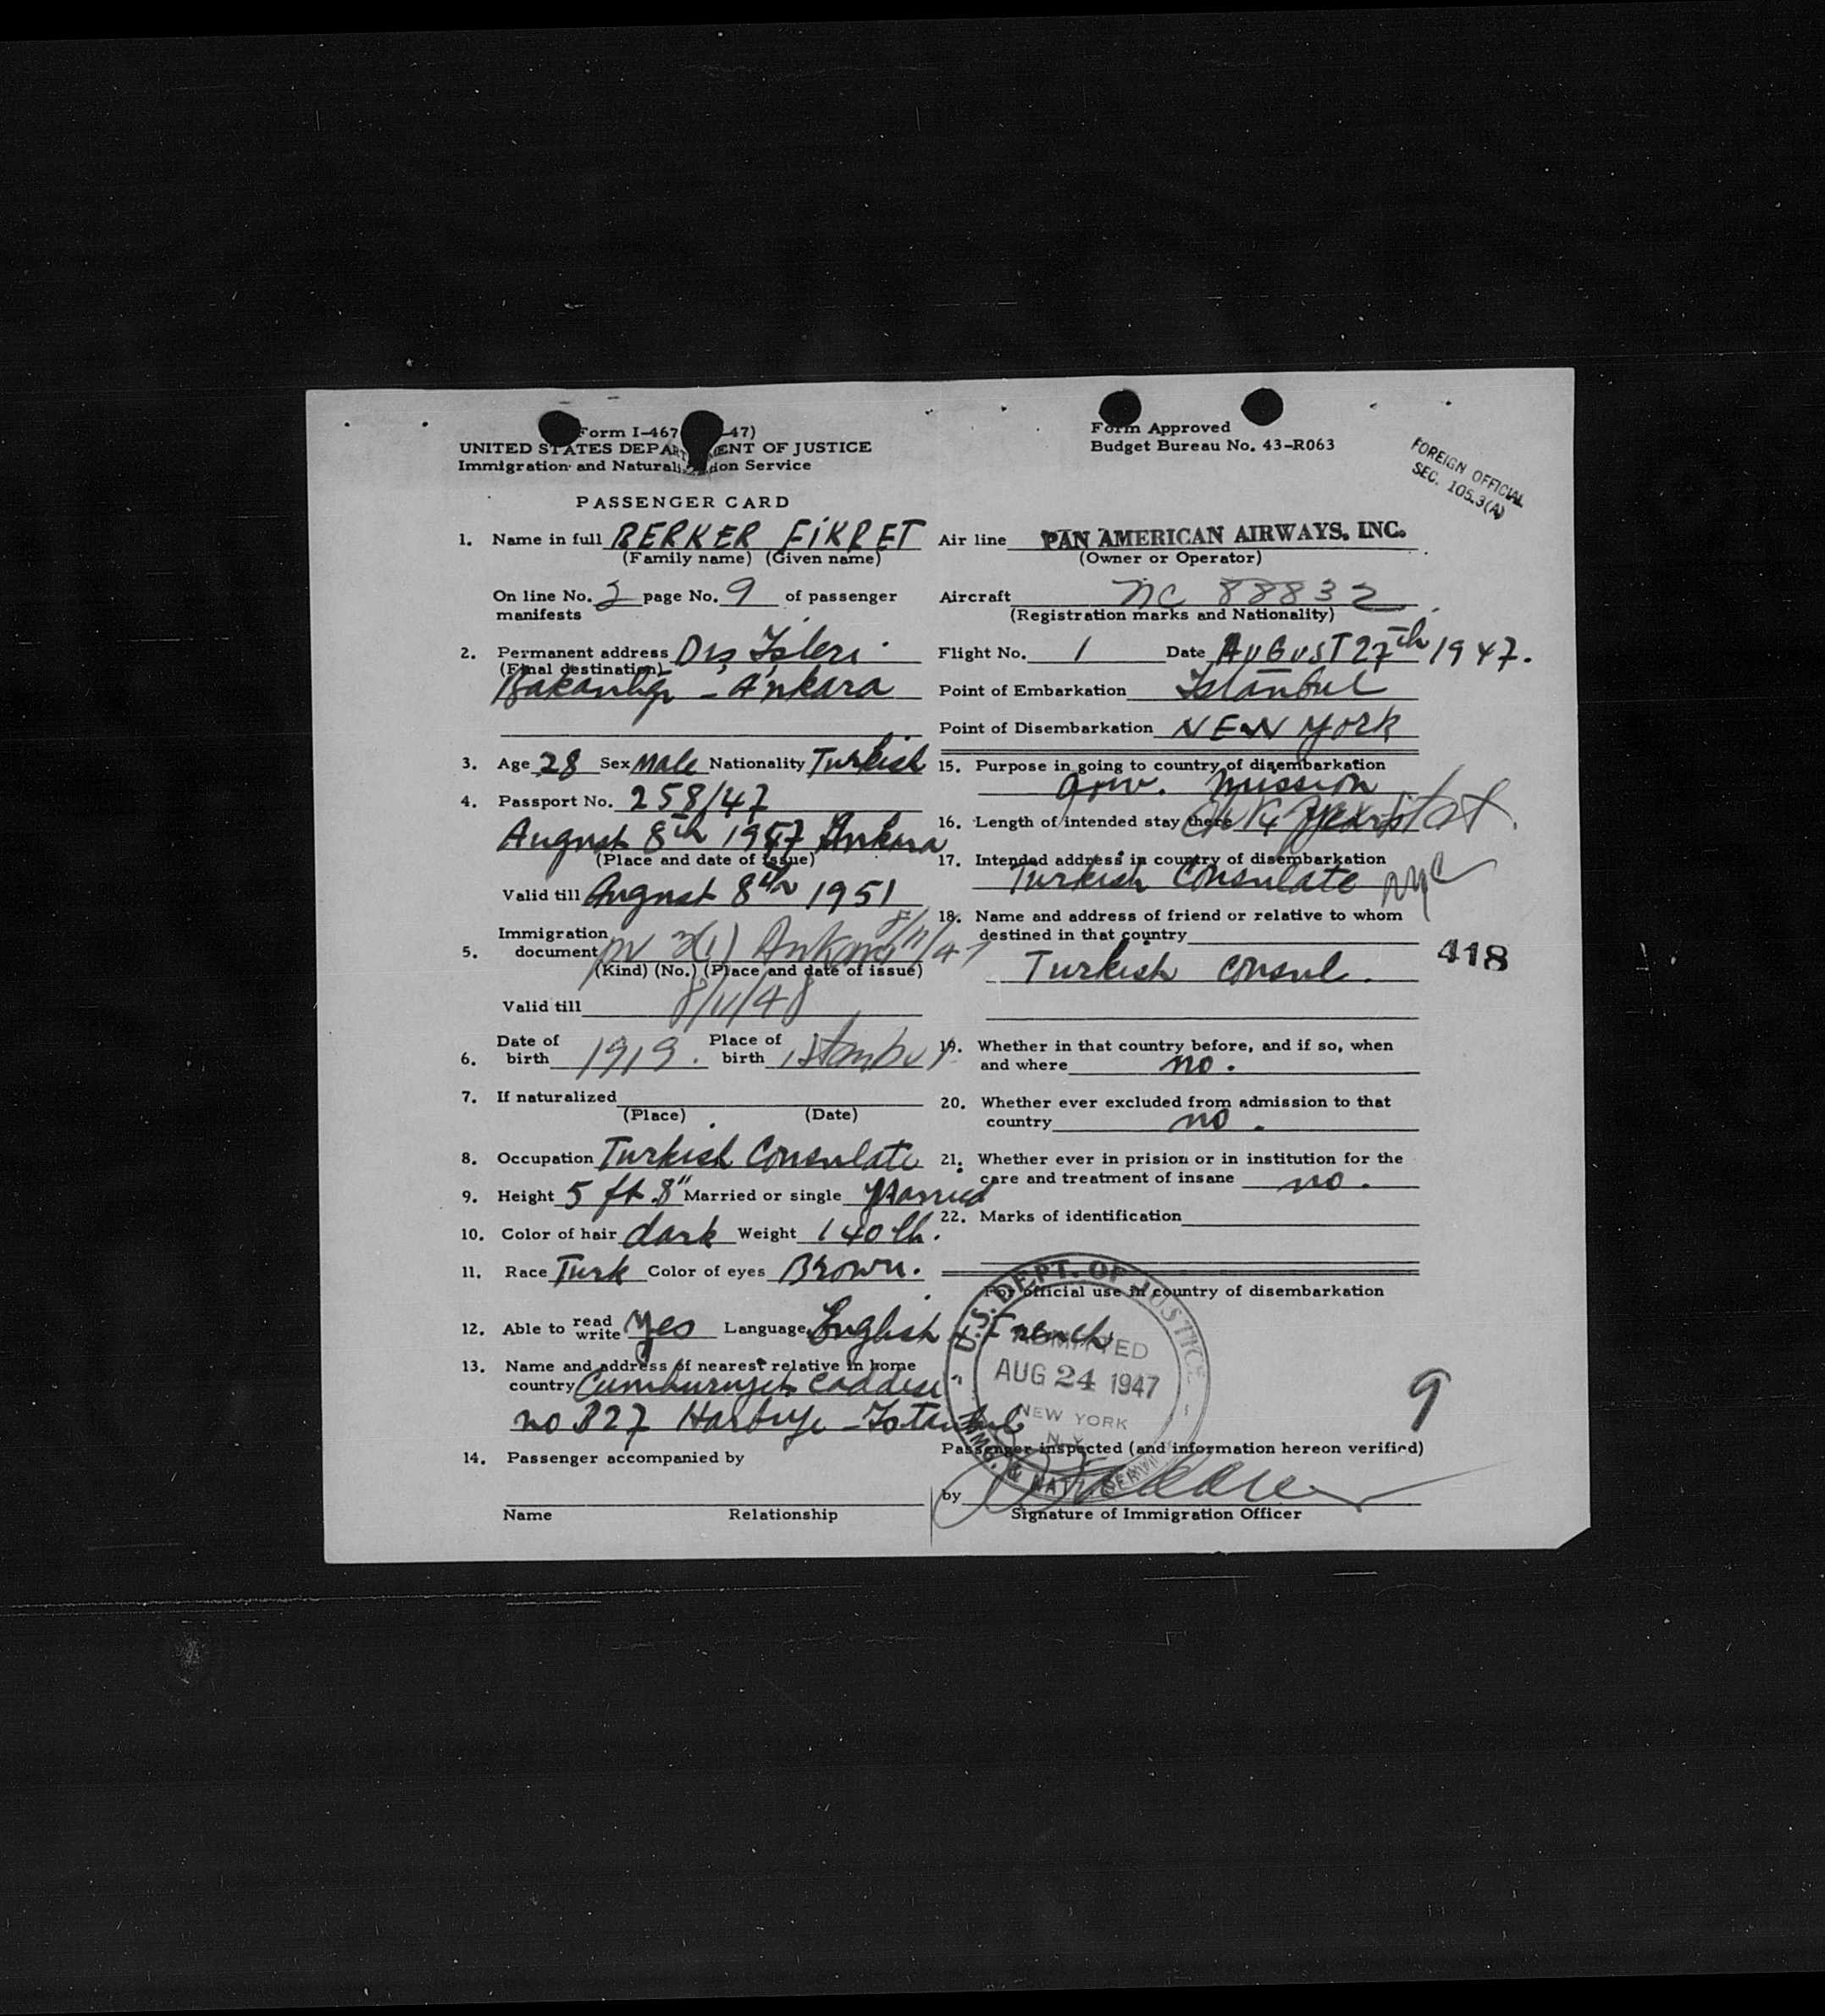 Form I-467 -47)
UNITED STATES DEPARTMENT OF JUSTICE
Immigration and Naturalization Service
PASSENGER CARD
Form Approved
Budget Bureau No. 43-R063
FOREIGN OFFICIAL
SEC. 105.3(A)
1. Name in full BERKER FiKRET
(Family name) (Given name)
On line No. 2 page No. 9 of passenger
manifests
2. Permanent address Dış İşleri
(Final destination)
Bakanlığı - Ankara
3. Age 28 Sex Male Nationality Turkish
4. Passport No. 258/47
August 8th 1947 Ankara
(Place and date of issue)
Valid till August 8th 1951
Immigration
5. document pv 3(1) Ankara 8/11/47
(Kind) (No.) (Place and date of issue)
Valid till 8/11/48
6. Date of birth 1919. Place of birth Istanbul
7. If naturalized
(Place) (Date)
8. Occupation Turkish Consulate
9. Height 5 ft 8" Married or single Married
10. Color of hair dark Weight 140 lb.
11. Race Turk Color of eyes Brown.
12. Able to read write yes Language English & French
13. Name and address of nearest relative in home
country Cumhuriyet Caddesi
no 327 Harbiye - Istanbul
14. Passenger accompanied by
Name Relationship
Air line PAN AMERICAN AIRWAYS, INC.
(Owner or Operator)
Aircraft NC 88832
(Registration marks and Nationality)
Flight No. 1 Date AUGUST 27th 1947.
Point of Embarkation Istanbul
Point of Disembarkation NEW York
15. Purpose in going to country of disembarkation
gow. mission
16. Length of intended stay there 4 years
17. Intended address in country of disembarkation
Turkish Consulate nyc
18. Name and address of friend or relative to whom
destined in that country
Turkish consul.
418
19. Whether in that country before, and if so, when
and where no.
20. Whether ever excluded from admission to that
country no.
21. Whether ever in prision or in institution for the
care and treatment of insane no.
22. Marks of identification
For official use in country of disembarkation
U.S. DEPT. OF JUSTICE
ADMITTED
AUG 24 1947
NEW YORK
N.Y.
IMMG. & NAT. SERVICE
9
Passenger inspected (and information hereon verified)
by
Signature of Immigration Officer